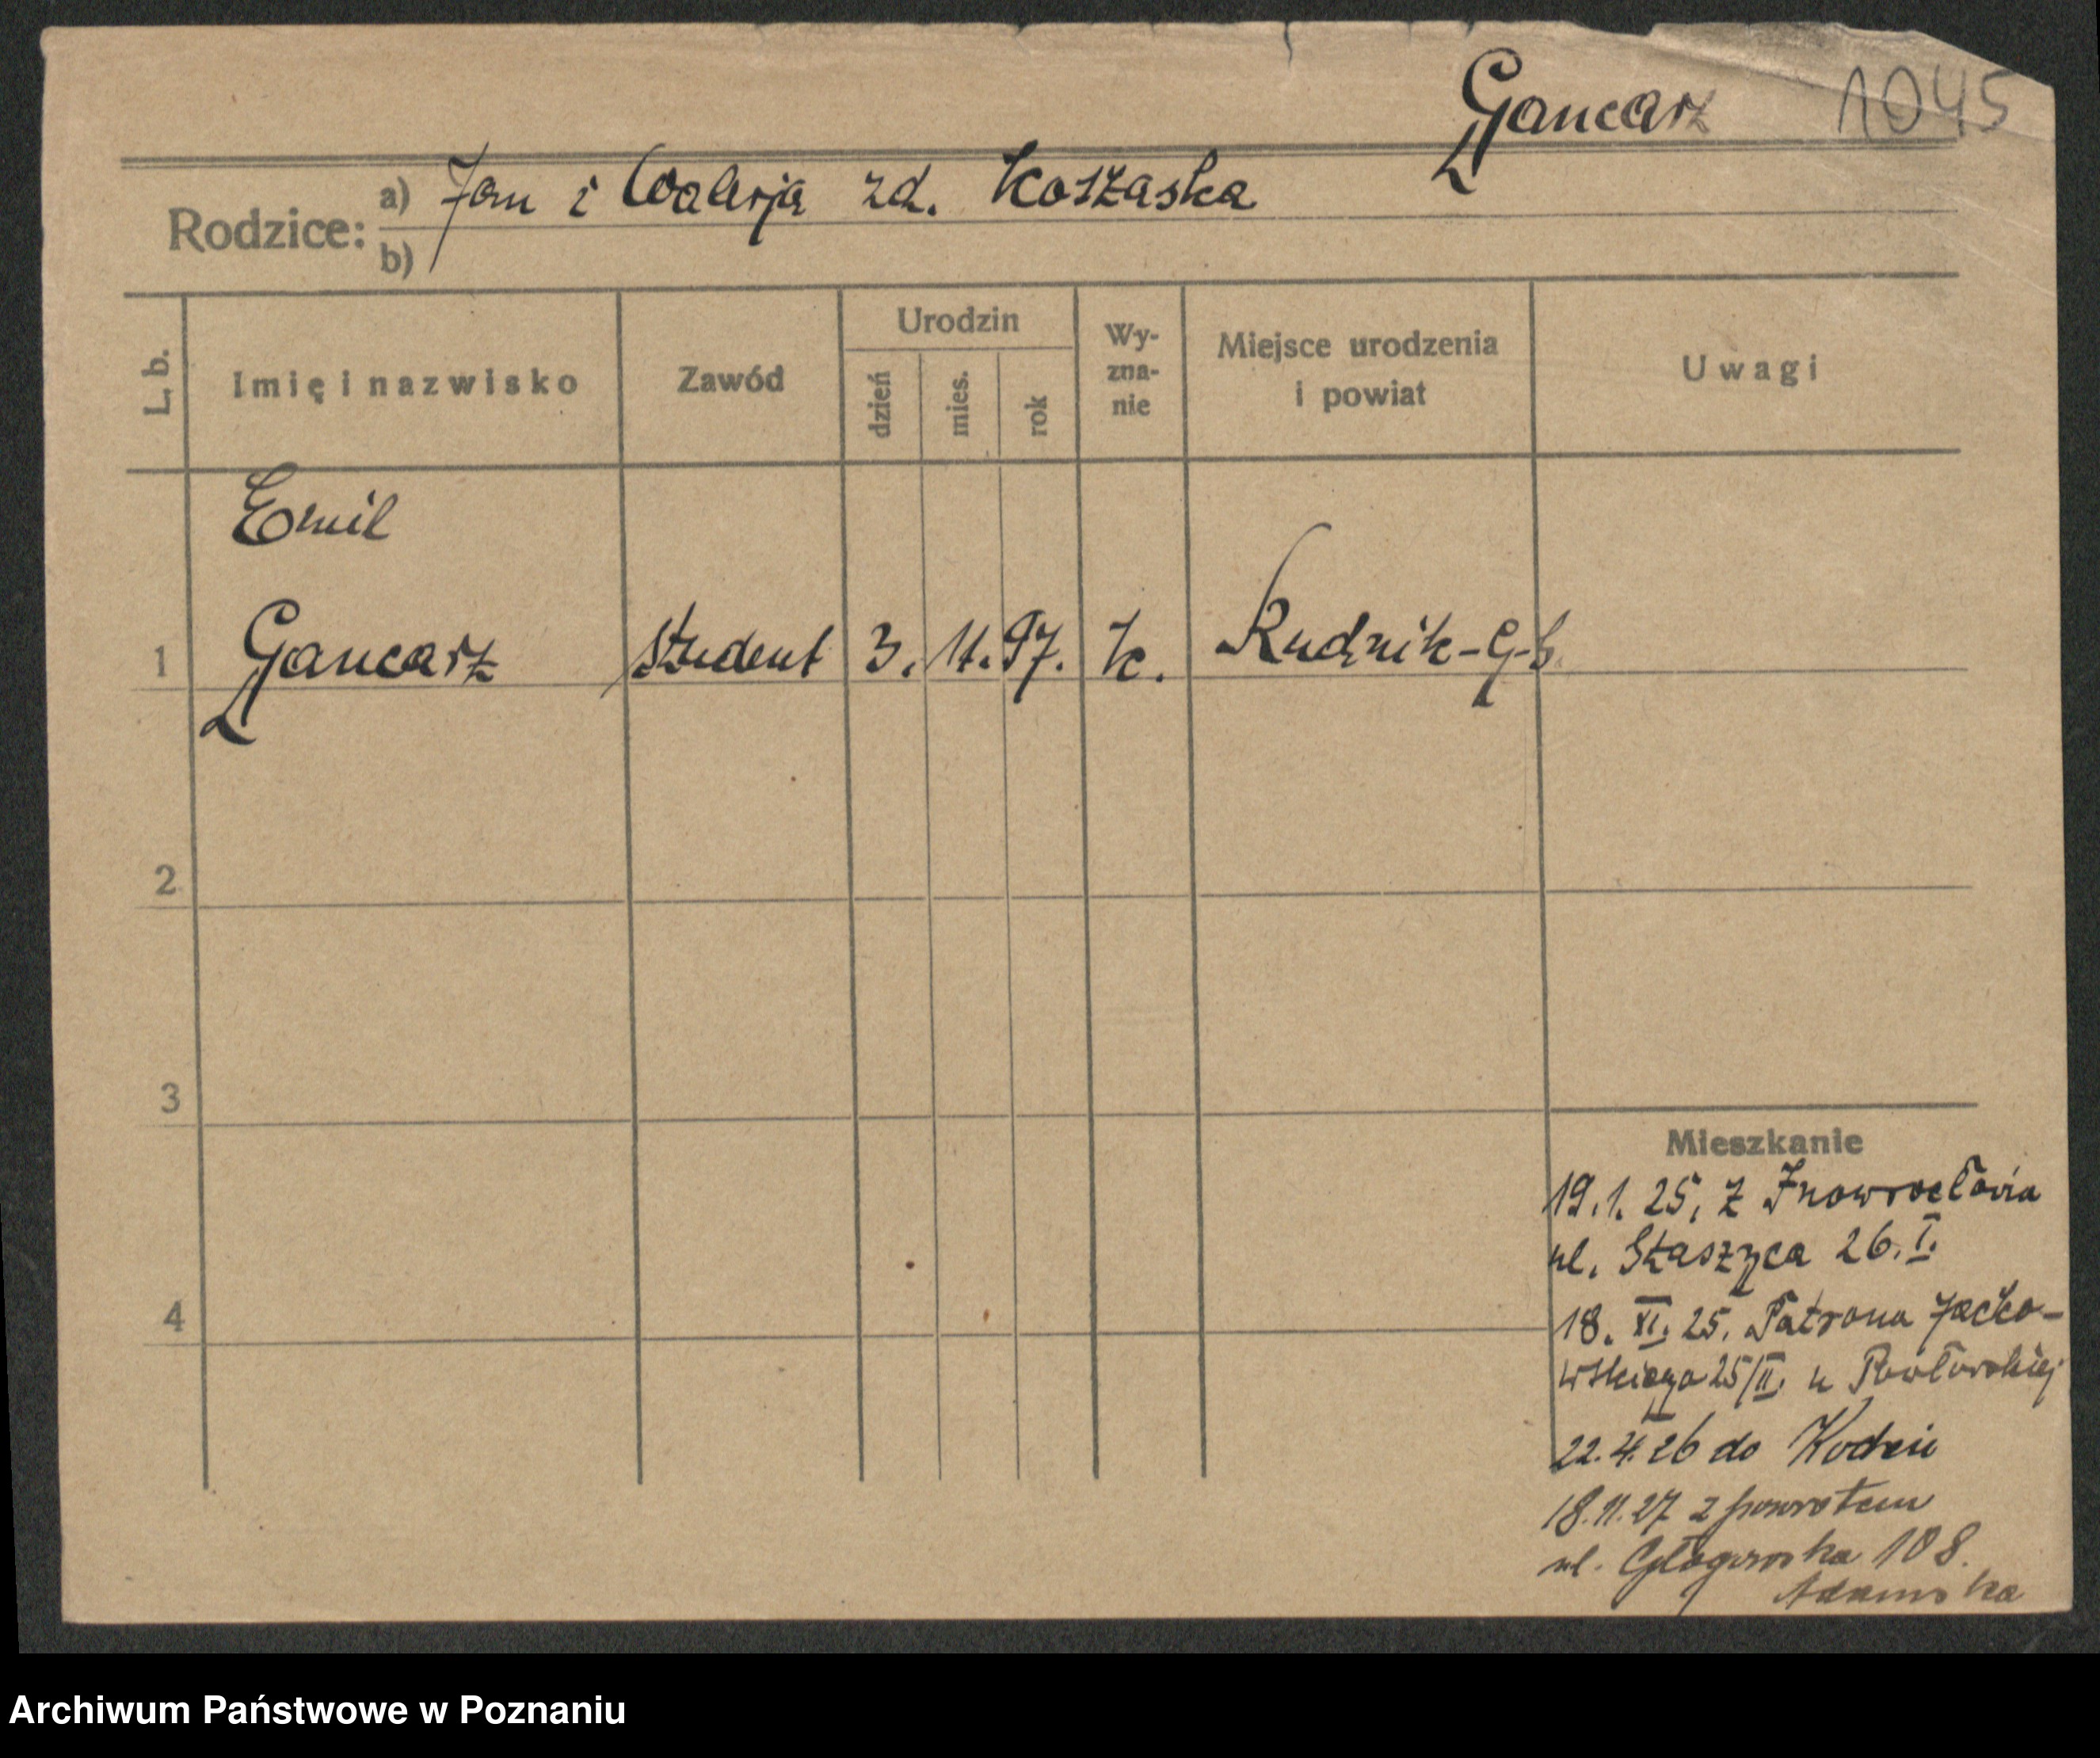 Gancarz 1045
Rodzice: a) Jan i Walerja zd. Koszaska
b)
L. b. Imię i nazwisko Zawód Urodzin dzień mies. rok Wy-zna-nie Miejsce urodzenia i powiat Uwagi
Emil
1 Gancarz student 3. 11. 97. k. Rudnik-G-ś.
2
3
4
Mieszkanie
19.1.25, z Inowrocławia
ul. Staszyca 26. I.
18. XI. 25. Patrona Jacko-
wskiego 25/II. u Pawłowskiej
22.4.26 do
18.11.27 z powrotem
ul. Głogowska 108.
Adamska
Archiwum Państwowe w Poznaniu